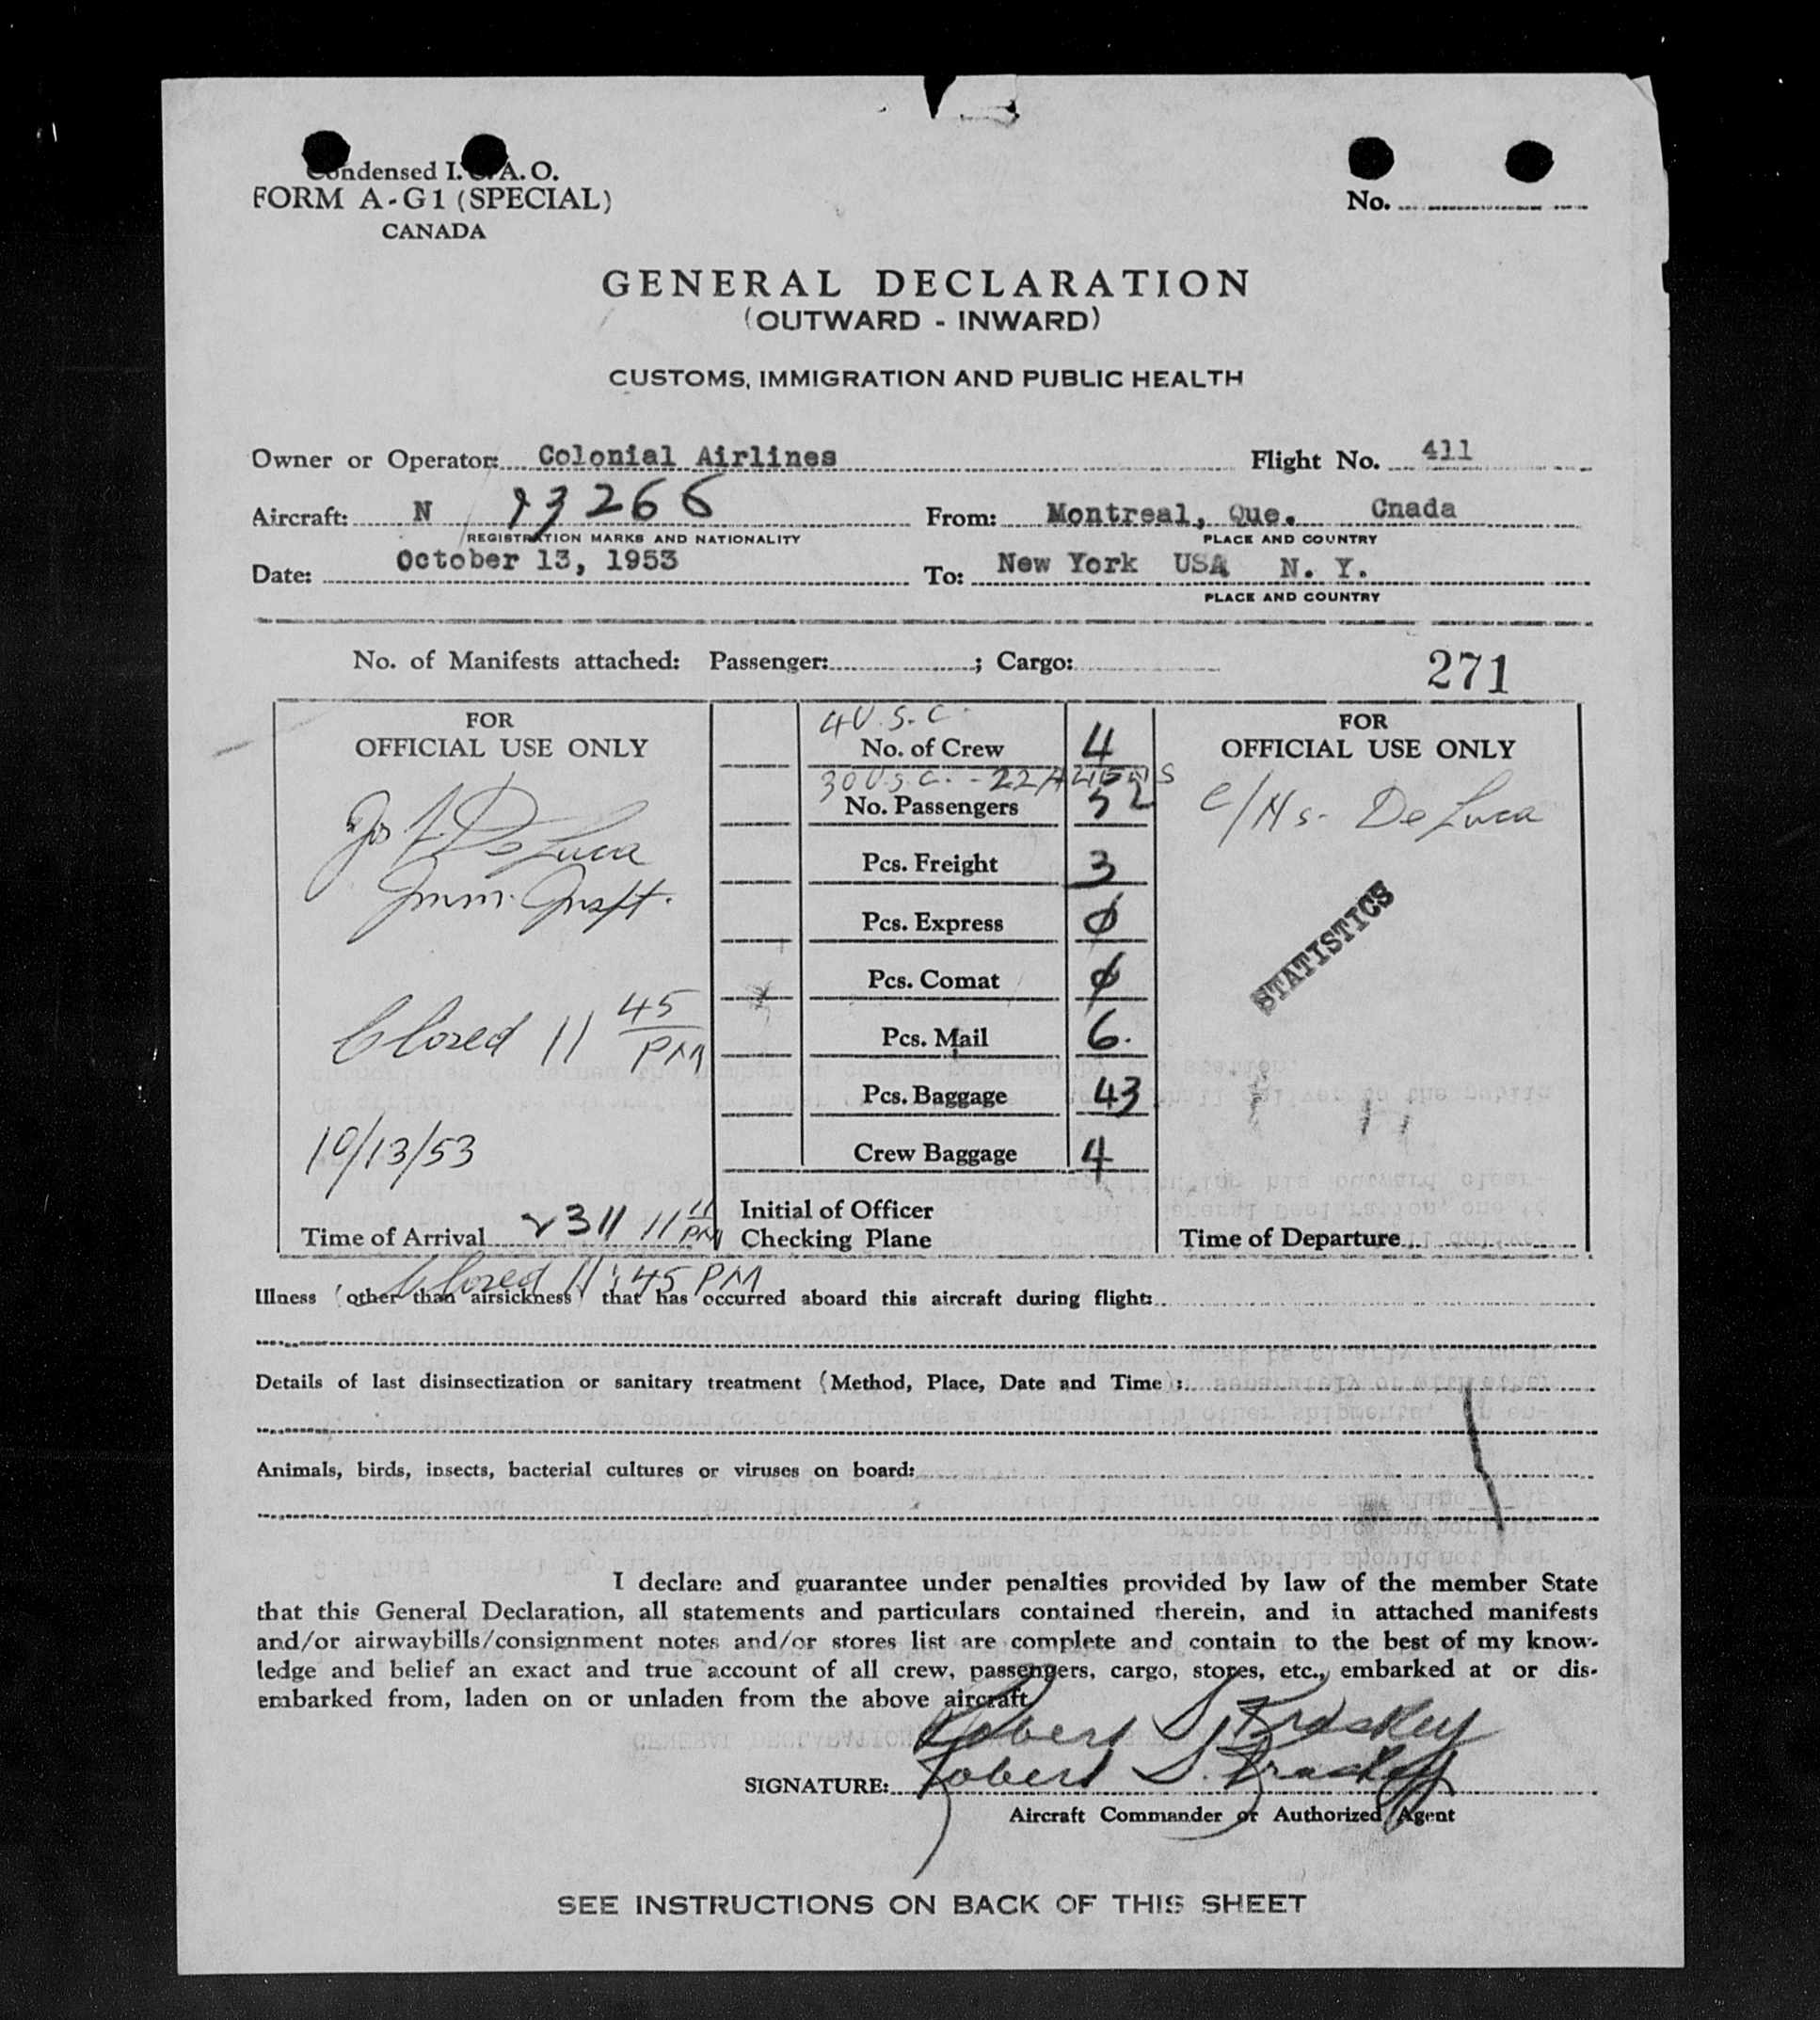 Condensed I.C.A.O.
FORM A-G1 (SPECIAL)
CANADA
No.
GENERAL DECLARATION
(OUTWARD - INWARD)
CUSTOMS, IMMIGRATION AND PUBLIC HEALTH
Owner or Operator: Colonial Airlines Flight No. 411
Aircraft: N 93266 From: Montreal, Que. Cnada
REGISTRATION MARKS AND NATIONALITY PLACE AND COUNTRY
Date: October 13, 1953 To: New York USA N. Y.
PLACE AND COUNTRY
No. of Manifests attached: Passenger: ; Cargo:
271
FOR
OFFICIAL USE ONLY
De Luca
Imm. Inspt.
Closed 11 45 PM
10/13/53
Time of Arrival 2311 11 11 PM
Closed 11:45 PM
4 U.S.C.
No. of Crew 4
30 U.S.C. - 22 Aliens
No. Passengers 52
Pcs. Freight 3
Pcs. Express 0
Pcs. Comat 0
Pcs. Mail 6.
Pcs. Baggage 43
Crew Baggage 4
Initial of Officer
Checking Plane
FOR
OFFICIAL USE ONLY
De Luca
STATISTICS
Time of Departure
Illness (other than airsickness) that has occurred aboard this aircraft during flight:
Details of last disinsectization or sanitary treatment (Method, Place, Date and Time):
Animals, birds, insects, bacterial cultures or viruses on board:
I declare and guarantee under penalties provided by law of the member State
that this General Declaration, all statements and particulars contained therein, and in attached manifests
and/or airwaybills/consignment notes and/or stores list are complete and contain to the best of my know-
ledge and belief an exact and true account of all crew, passengers, cargo, stores, etc., embarked at or dis-
embarked from, laden on or unladen from the above aircraft.
Robert S.
SIGNATURE: Robert S.
Aircraft Commander or Authorized Agent
SEE INSTRUCTIONS ON BACK OF THIS SHEET